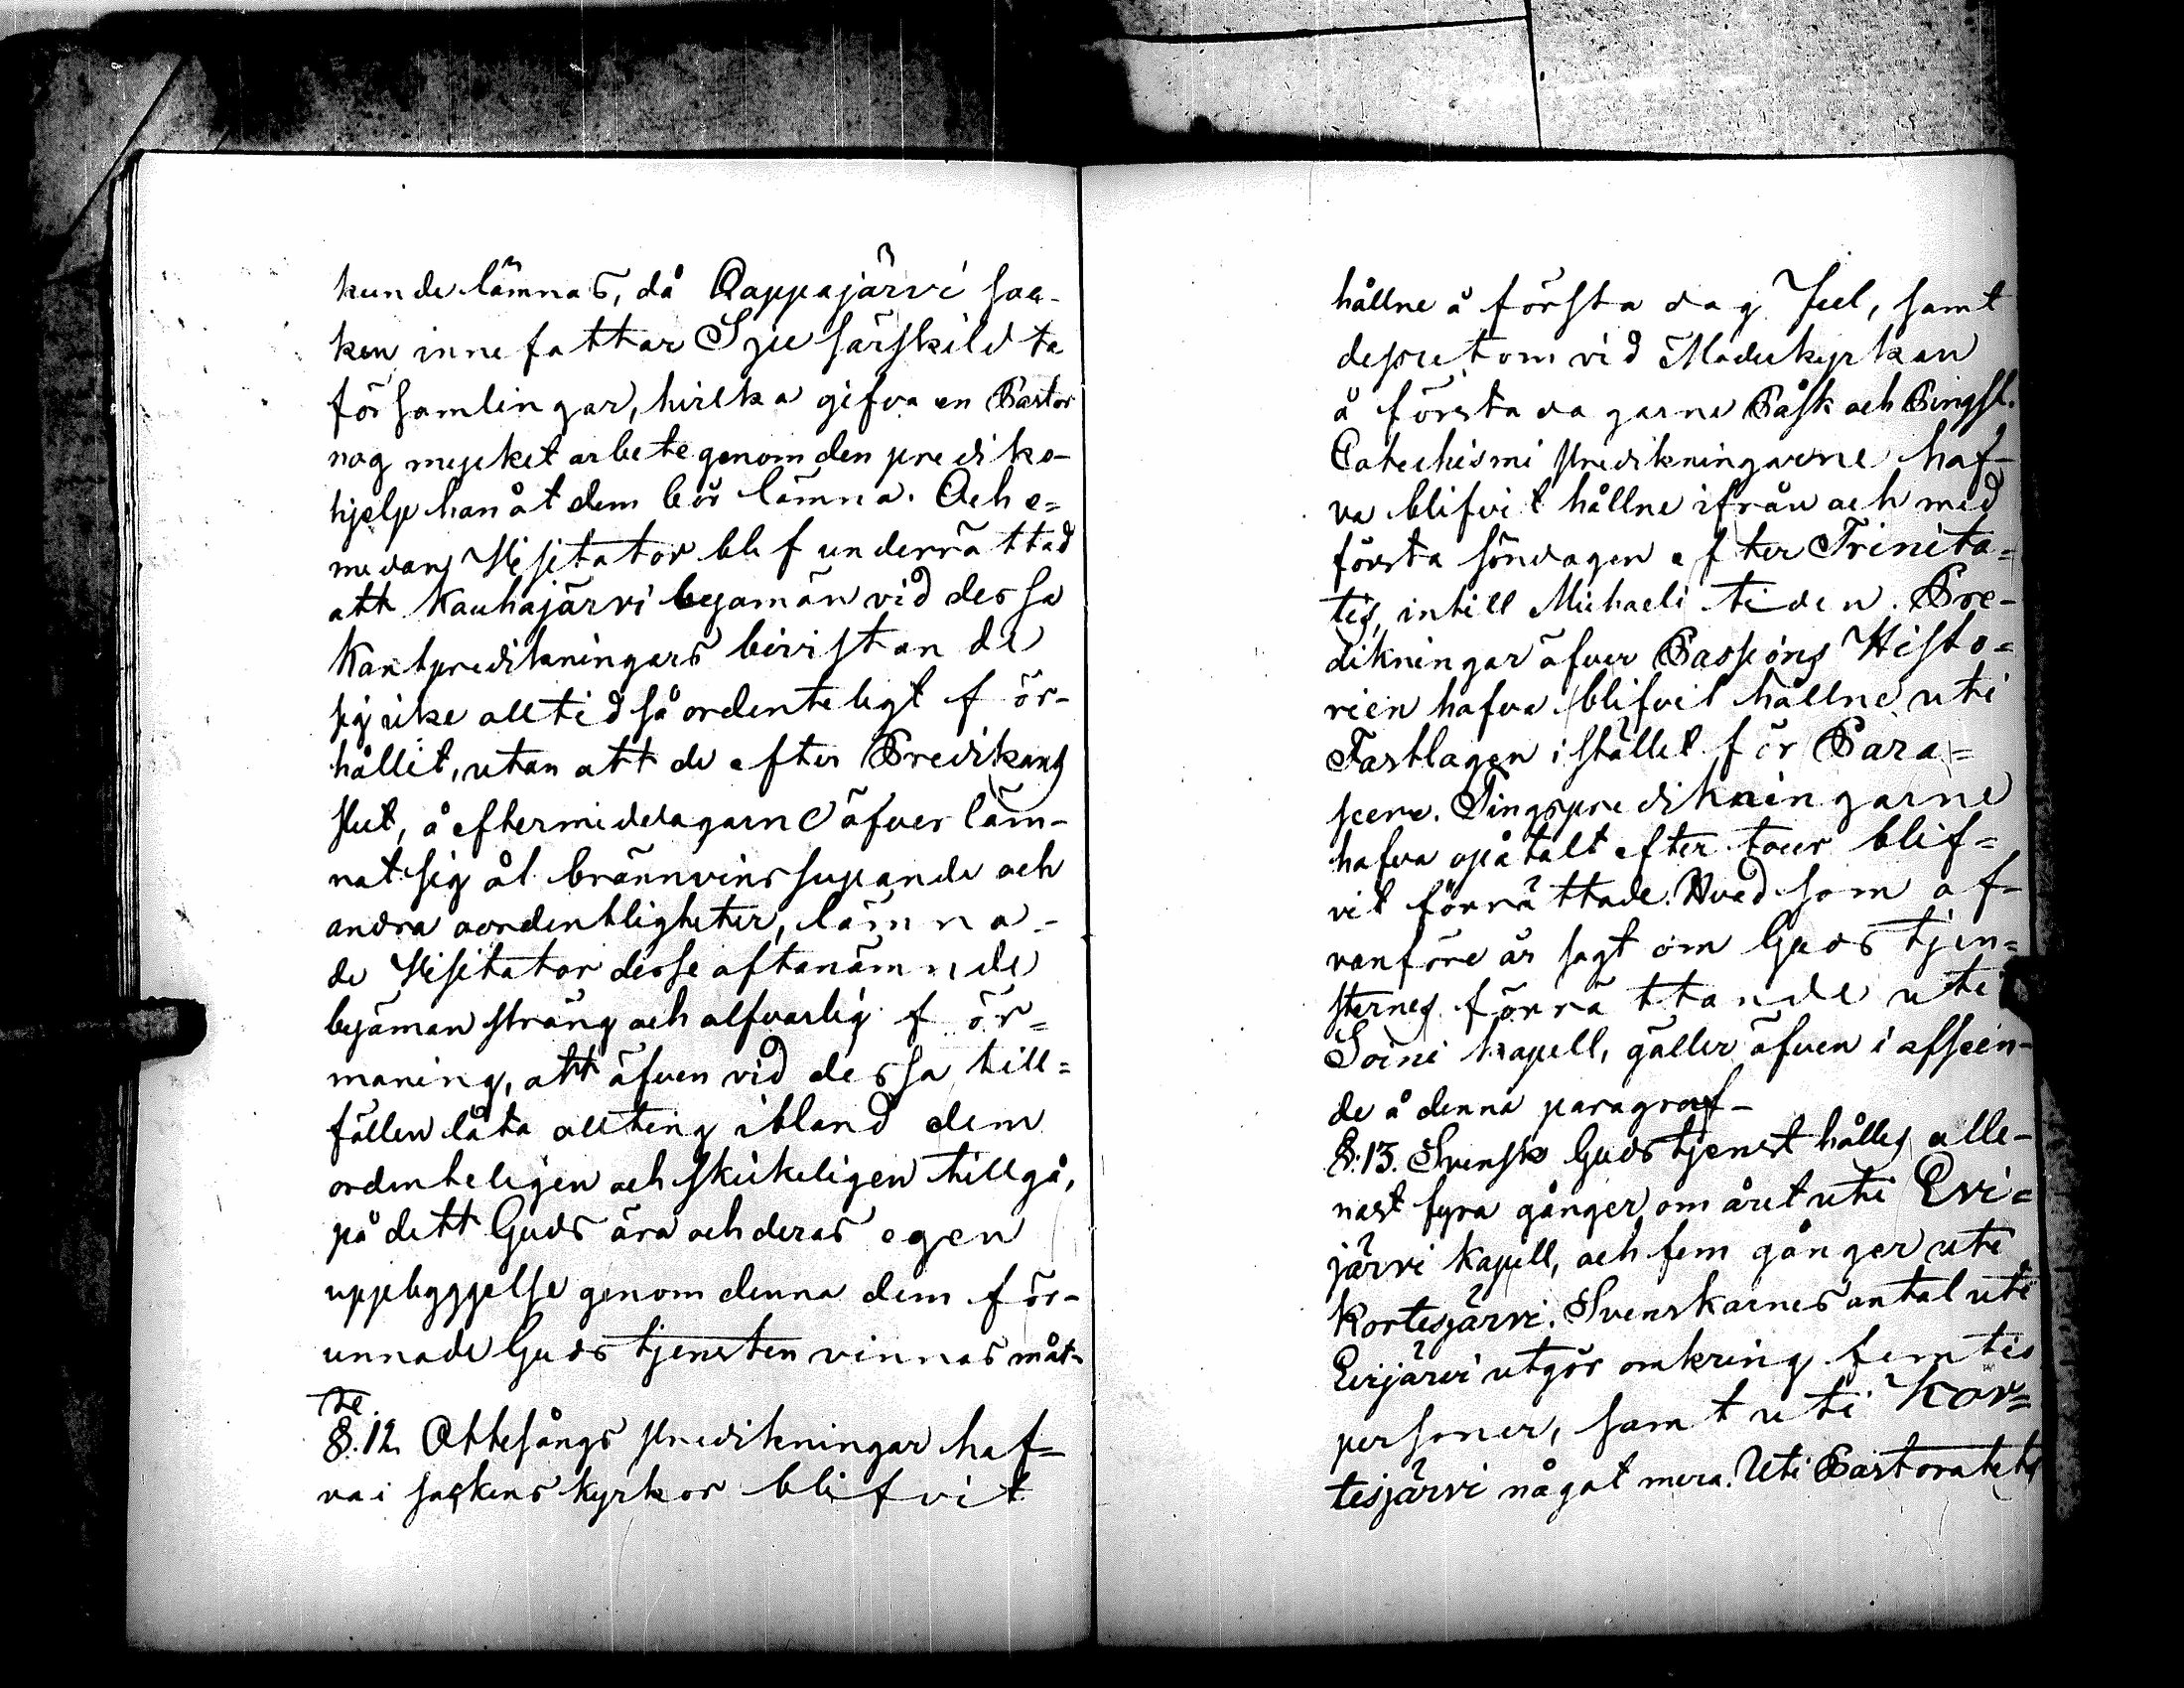 kunde lämnas, då Lappajärvi soc-
ken innefattar Sju särskildta
församlingar, hvilka gifva en Pastor
nog mycket arbete genom den prediko-
hjelp han åt dem bör lämna. Och e=
medan Visitator blef underrättad
att Kauhajärvi byamän vid dessa
Kantpredikningars bivistande
sig icke alltid så ordenteligt för-
hållit, utan att de efter Predikans
slut, å eftermiddagarne äfverläm-
nat sig åt brännvinssupande och
andra oordentligheter, lämna-
de Visitator desse oftanämnde
byaman sträng och alfvarlig för=
maning, att äfven vid dessa till=
fällen låta allting ibland dem
ordenteligen och skickeligen tillgå,
på dett Guds ära och deras egen
uppbyggelse genom denna dem för-
unnade Gudstjensten vinnas måt-
te.
§.12. Ottesångs predikningar haf=
va i sockens kyrkor blifvit
hållne å första dag Jul, samt
dessutom vid Moderkyrkan
å första dagarne Påsk och Pingst.
Catechismi predikningarne haf-
va blifvit hållne ifrån och med
första söndagen efter Trinita=
tis, intill Michaeli tiden. Pre-
dikningar äfver Passions Histo=
rien hafva blifvit hållne uti
Fastlagen i stället för Para=
sceve. Tingspredikningarne
hafva opåtalt efter tour blif=
vit förrättade. Hvad som of-
vanföre är sagt om Guds tjen=
sternes förrättande uti
Soini kapell, gäller äfven i afseen-
de å denna paragraf-
§.13. Svensk Gudstjenst hålles alle-
nast fyra gånger om året uti Evi=
järvi kapell, och fem gånger uti
Kortesjärvi. Svenskarnes antal uti
Evijärvi utgör omkring femtio
personer, samt uti Kor=
tesjärvi något mera. Uti Pastoratets